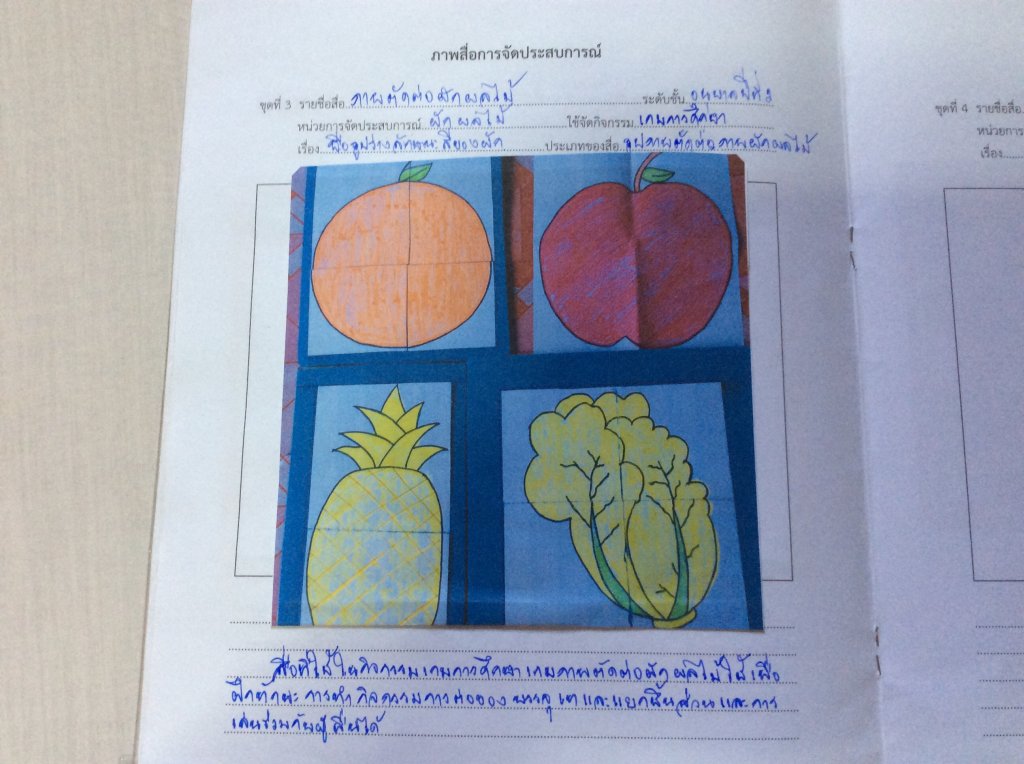 ภาพสื่อการจัดประสบการณ์
ชุดที่ 3 รายชื่อสื่อ ภาพตัดต่อผักผลไม้ ระดับชั้น อนุบาลปีที่ 2
หน่วยการจัดประสบการณ์ ผักผลไม้ ใช้จัดกิจกรรม เกมการศึกษา
เรื่อง ชื่อรูปร่างลักษณะสีของผัก ประเภทของสื่อ รูปภาพตัดต่อภาพผักผลไม้
สื่อที่ใช้ในกิจกรรมเกมการศึกษา เกมภาพตัดต่อผักผลไม้ใช้เพื่อ
ฝึกทักษะ การทำกิจกรรมการต่อของ และแยกชิ้นส่วน และการ
เล่นร่วมกับผู้อื่นได้
ชุดที่ 4 รายชื่อสื่อ
หน่วยการ
เรื่อง